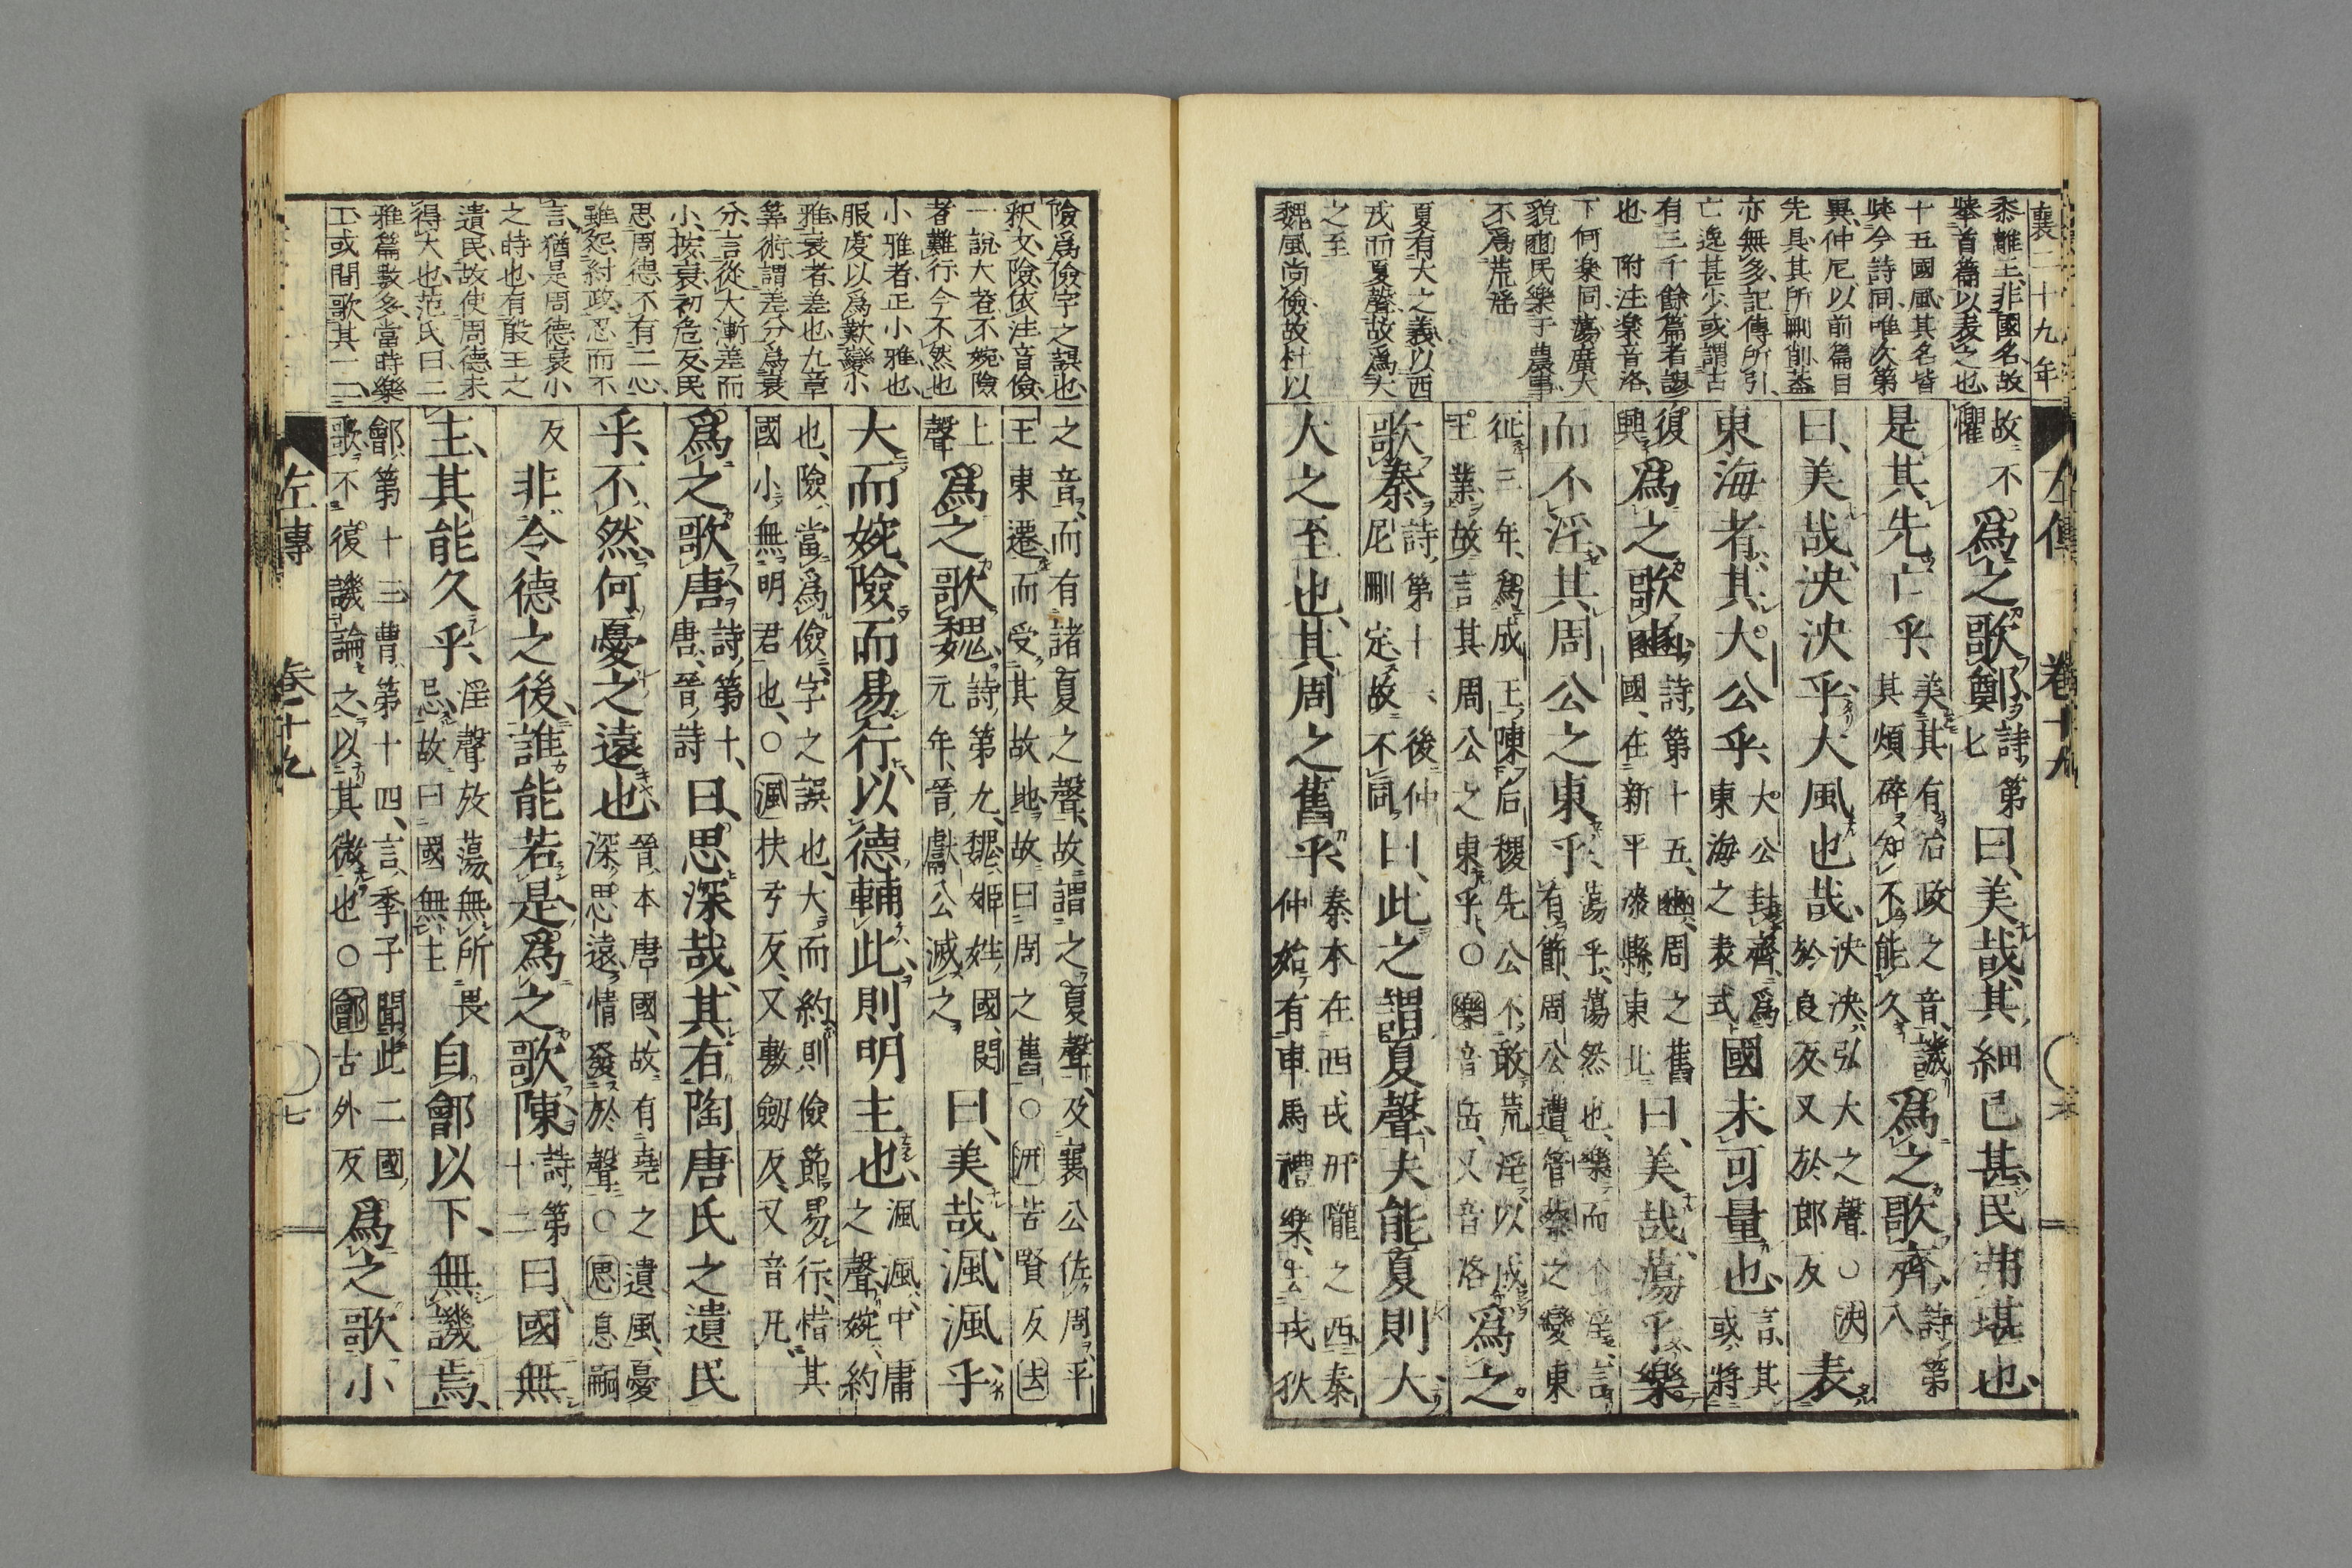 襄二十九年
左傳 卷十九
黍離王、非國名、故
舉首篇以表之也
十五國風、其名皆
與今詩同、唯次第
異、仲尼以前篇目
先具、其所刪削蓋
亦無多、記傳所引、
亡逸甚少、或謂古
有三千餘篇者謬
也 附注樂音洛、
下何樂同、蕩、廣大
貌、豳民樂于農事、
不爲荒淫
夏有大之義、以西
戎而夏聲、故爲大
之至
魏風尚儉、故杜以
故不懼爲之歌鄭、詩第七曰、美哉、其細已甚、民弗堪也、
是其先亡乎、美其有治政之音、譏其煩碎、知不能久爲之歌齊、詩第八
曰、美哉、泱泱乎、大風也哉、泱泱、弘大之聲○泱於良反又於郎反表
東海者、其大公乎、大公封齊、爲東海之表式國未可量也、言其或將
復興爲之歌豳、詩第十五、豳、周之舊國、在新平漆縣東北曰、美哉、蕩乎、樂
而不淫、其周公之東乎、蕩乎、蕩然也、樂而不淫、言有節、周公遭管蔡之變、東
征三年、爲成王陳后稷先公不敢荒淫、以成王業、故言其周公之東乎、○樂音岳、又音洛爲之
歌秦、詩、第十一、後仲尼刪定、故不同、曰、此之謂夏聲、夫能夏則大、
大之至也、其周之舊乎、秦本在西戎汧隴之西、秦仲始有車馬禮樂、去戎狄
險爲儉字之誤也、
釈文、險、依注、音儉、
一說、大者不婉、險
者難行、今不然也
小雅者、正小雅也、
服虔以爲歎變小
雅、衰者、差也、九章
筭術、謂差分爲衰
分、言從大漸差而
小、按衰、初危反、民
思周德、不有二心、
雖怨紂政、忍而不
言、猶是周德衰小
之時也、有殷王之
遺民、故使周德未
得大也、范氏曰、二
雅篇數多、當時樂
工、或間歌其一二、
之音、而有諸夏之聲、故謂之夏聲、及襄公佐周、平王東遷、而受其故地、故曰周之舊○汧苦賢反去
上聲爲之歌魏、詩、第九、魏、姬姓國、閔元年、晉獻公滅之曰、美哉、渢渢乎、
大而婉、險而易行、以德輔此、則明主也、渢渢、中庸之聲、婉、約
也、險、當爲儉、字之誤也、大而約、則儉節易行、惜其國小無明君也、○渢扶弓反、又敷劔反、又音凡、
爲之歌唐、詩、第十、唐、晉詩曰、思深哉、其有陶唐氏之遺民
乎、不然、何憂之遠也、晉、本唐國、故有堯之遺風、憂深思遠、情發於聲○思息嗣
反非令德之後、誰能若是、爲之歌陳、詩、第十二曰、國無
主、其能久乎、淫聲放蕩、無所畏忌、故曰國無主自鄶以下、無譏焉、
鄶、第十三、曹、第十四、言、季子聞此二國歌、不復譏論之、以其微也○鄶古外反爲之歌小
左傳 卷十九 七